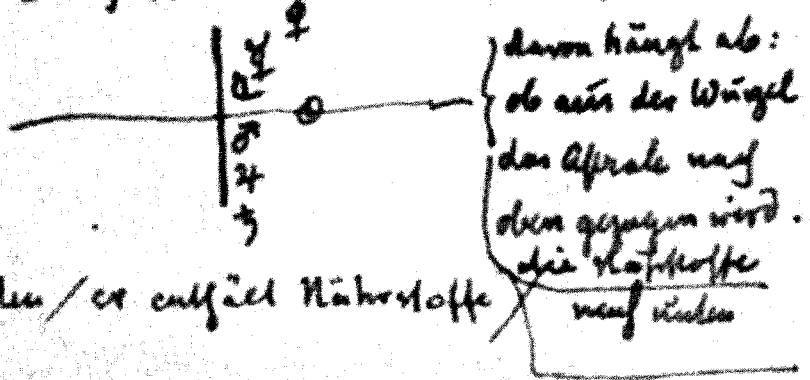 ♀
☿
♂
♃
♄
davon hängt ab:
ob aus der Wurzel
das Astrale nach
oben gezogen wird.
die Nährstoffe
nach unten
/ er enthält Nährstoffe